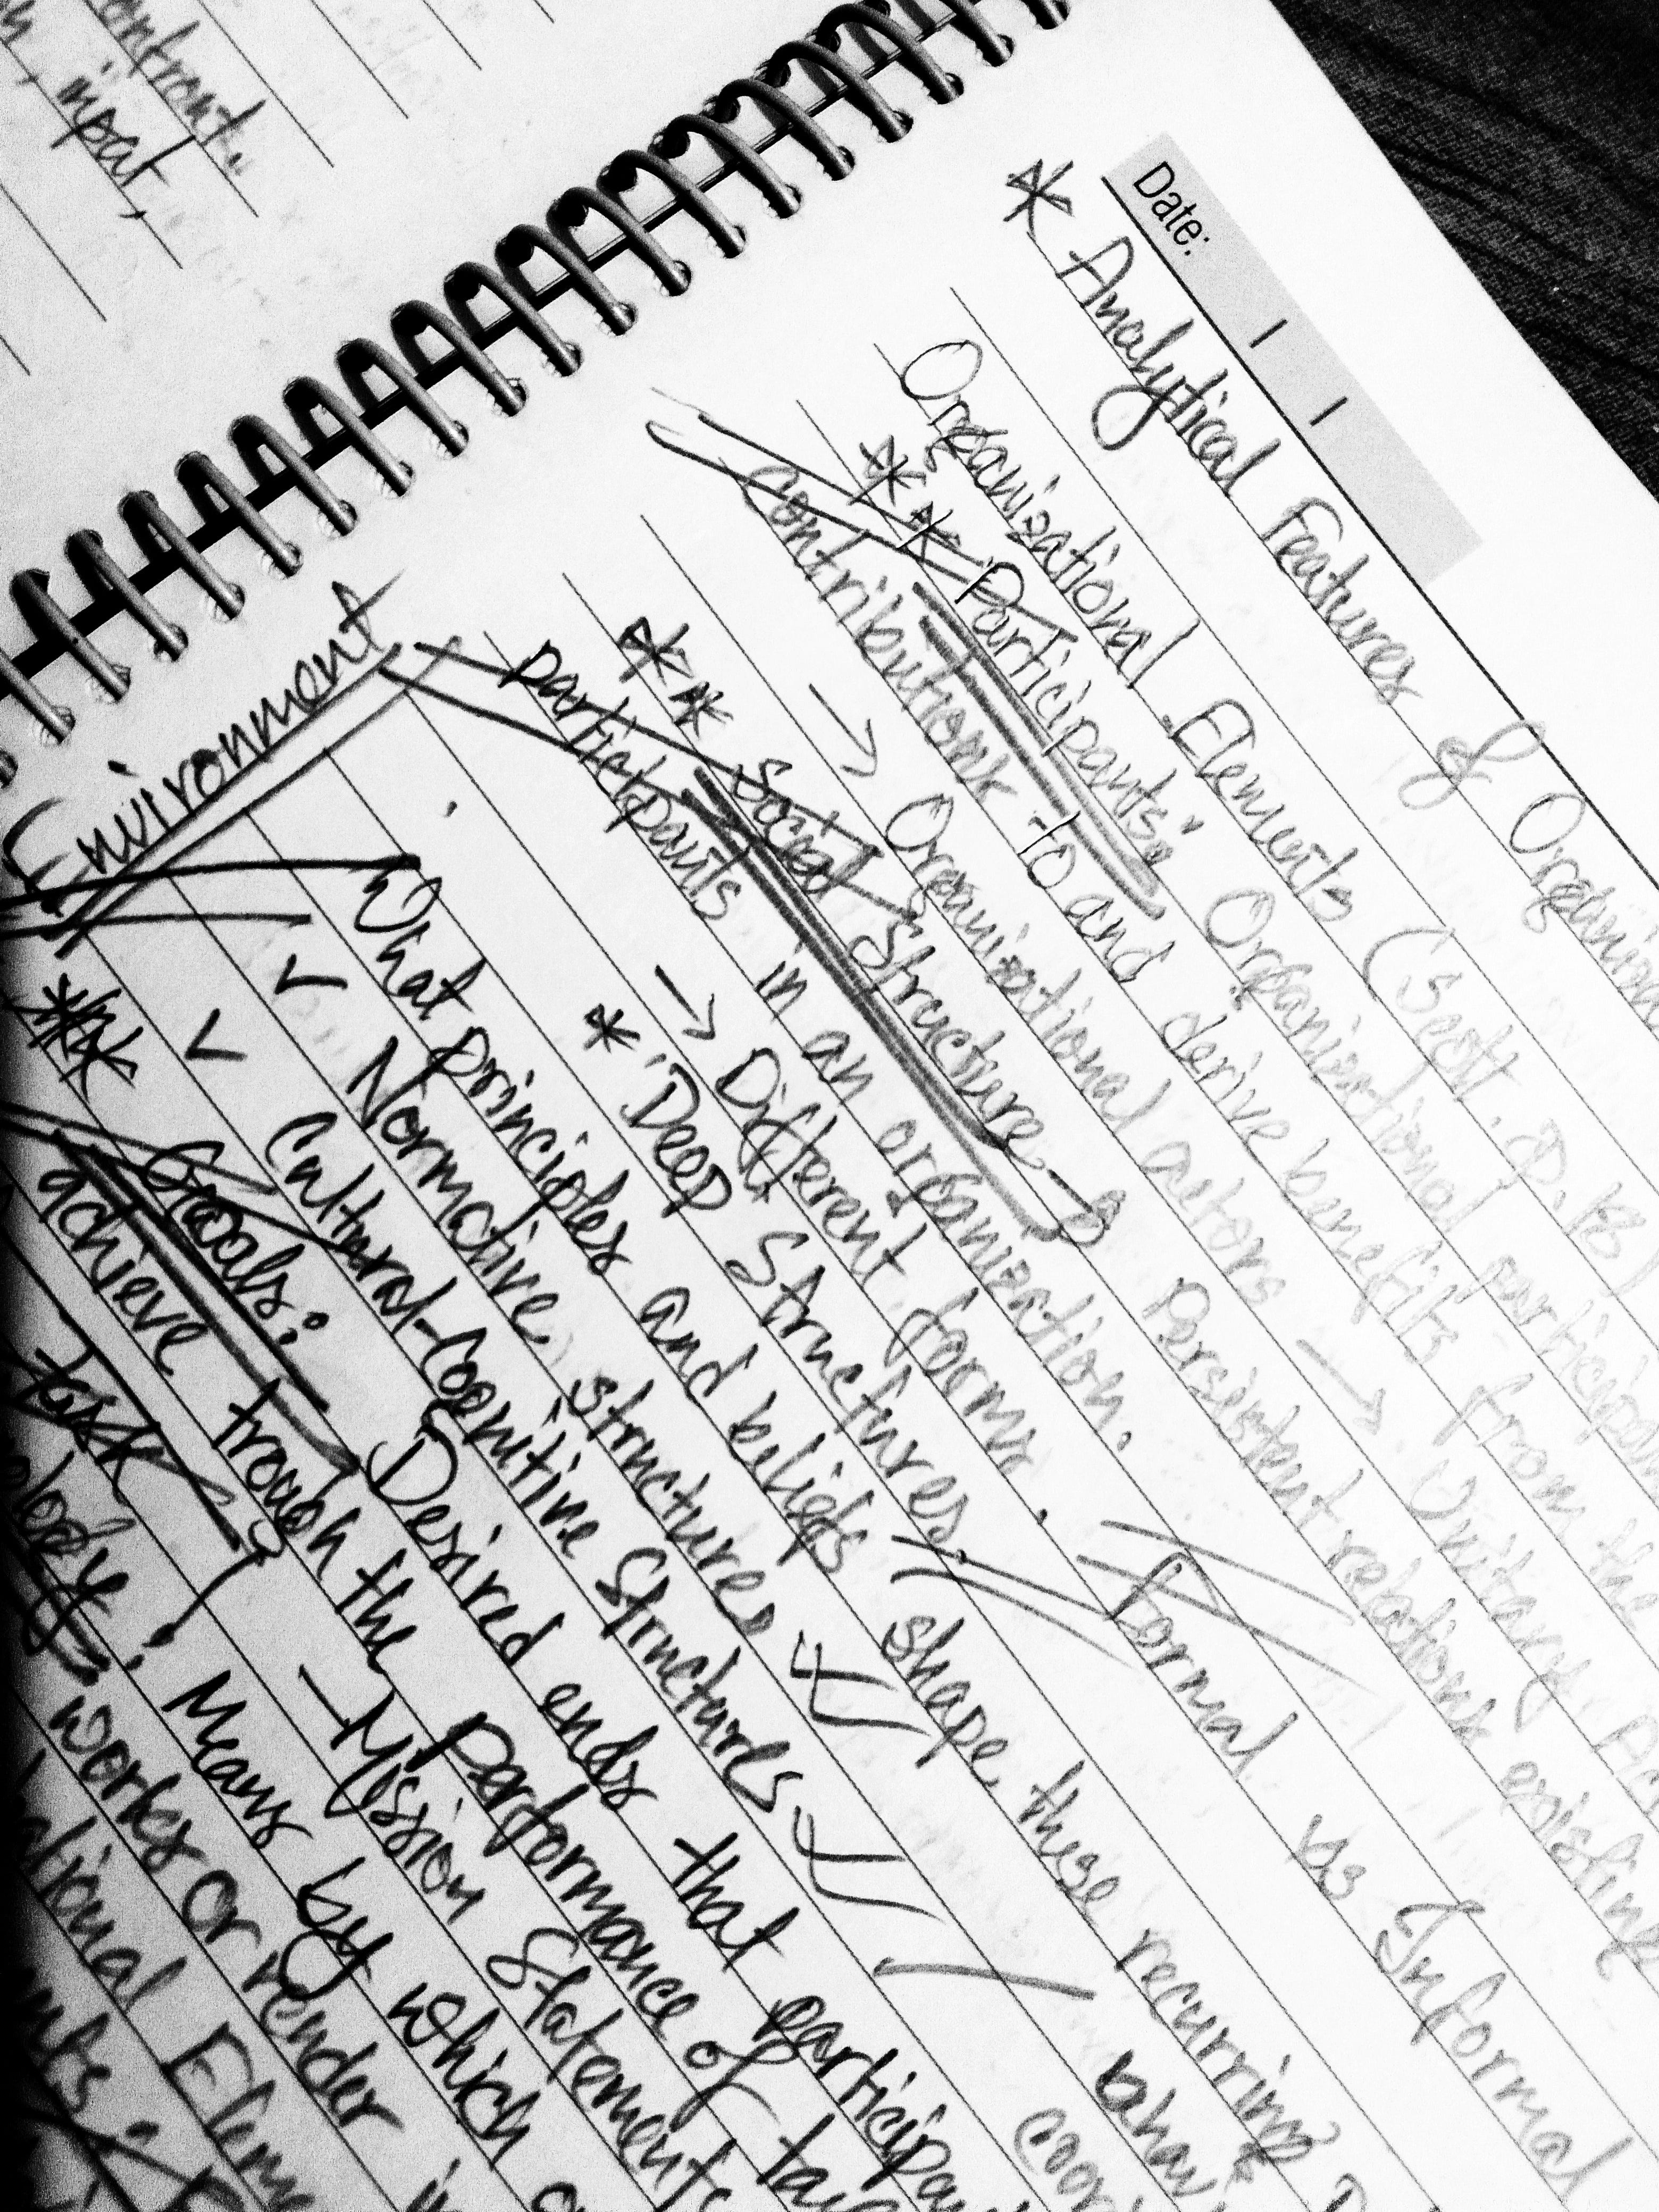 contront..
inpat,
Date: / /
* Analytical Features of Organiza
Organizational Elements (Scott. P. 18)
** Participants: Organizational participan
contributions to and derive benefits from the
→ Organizational actors → Unitary Ac
** Social Structure: Persistent relations existing
participants in an organization.
→ Different forms. Formal vs Informal
* Deep Structures.
What principles and beliefs shape these recurring
✓ Normative structures
behavi
✓ Cultural-Cognitive Structures
coor
Environment
*** Goals: Desired ends that participan
achieve trough the performance of tas
Task
- Mission Statements
ology: Means by which o
works or render
ational Eleme
nts: